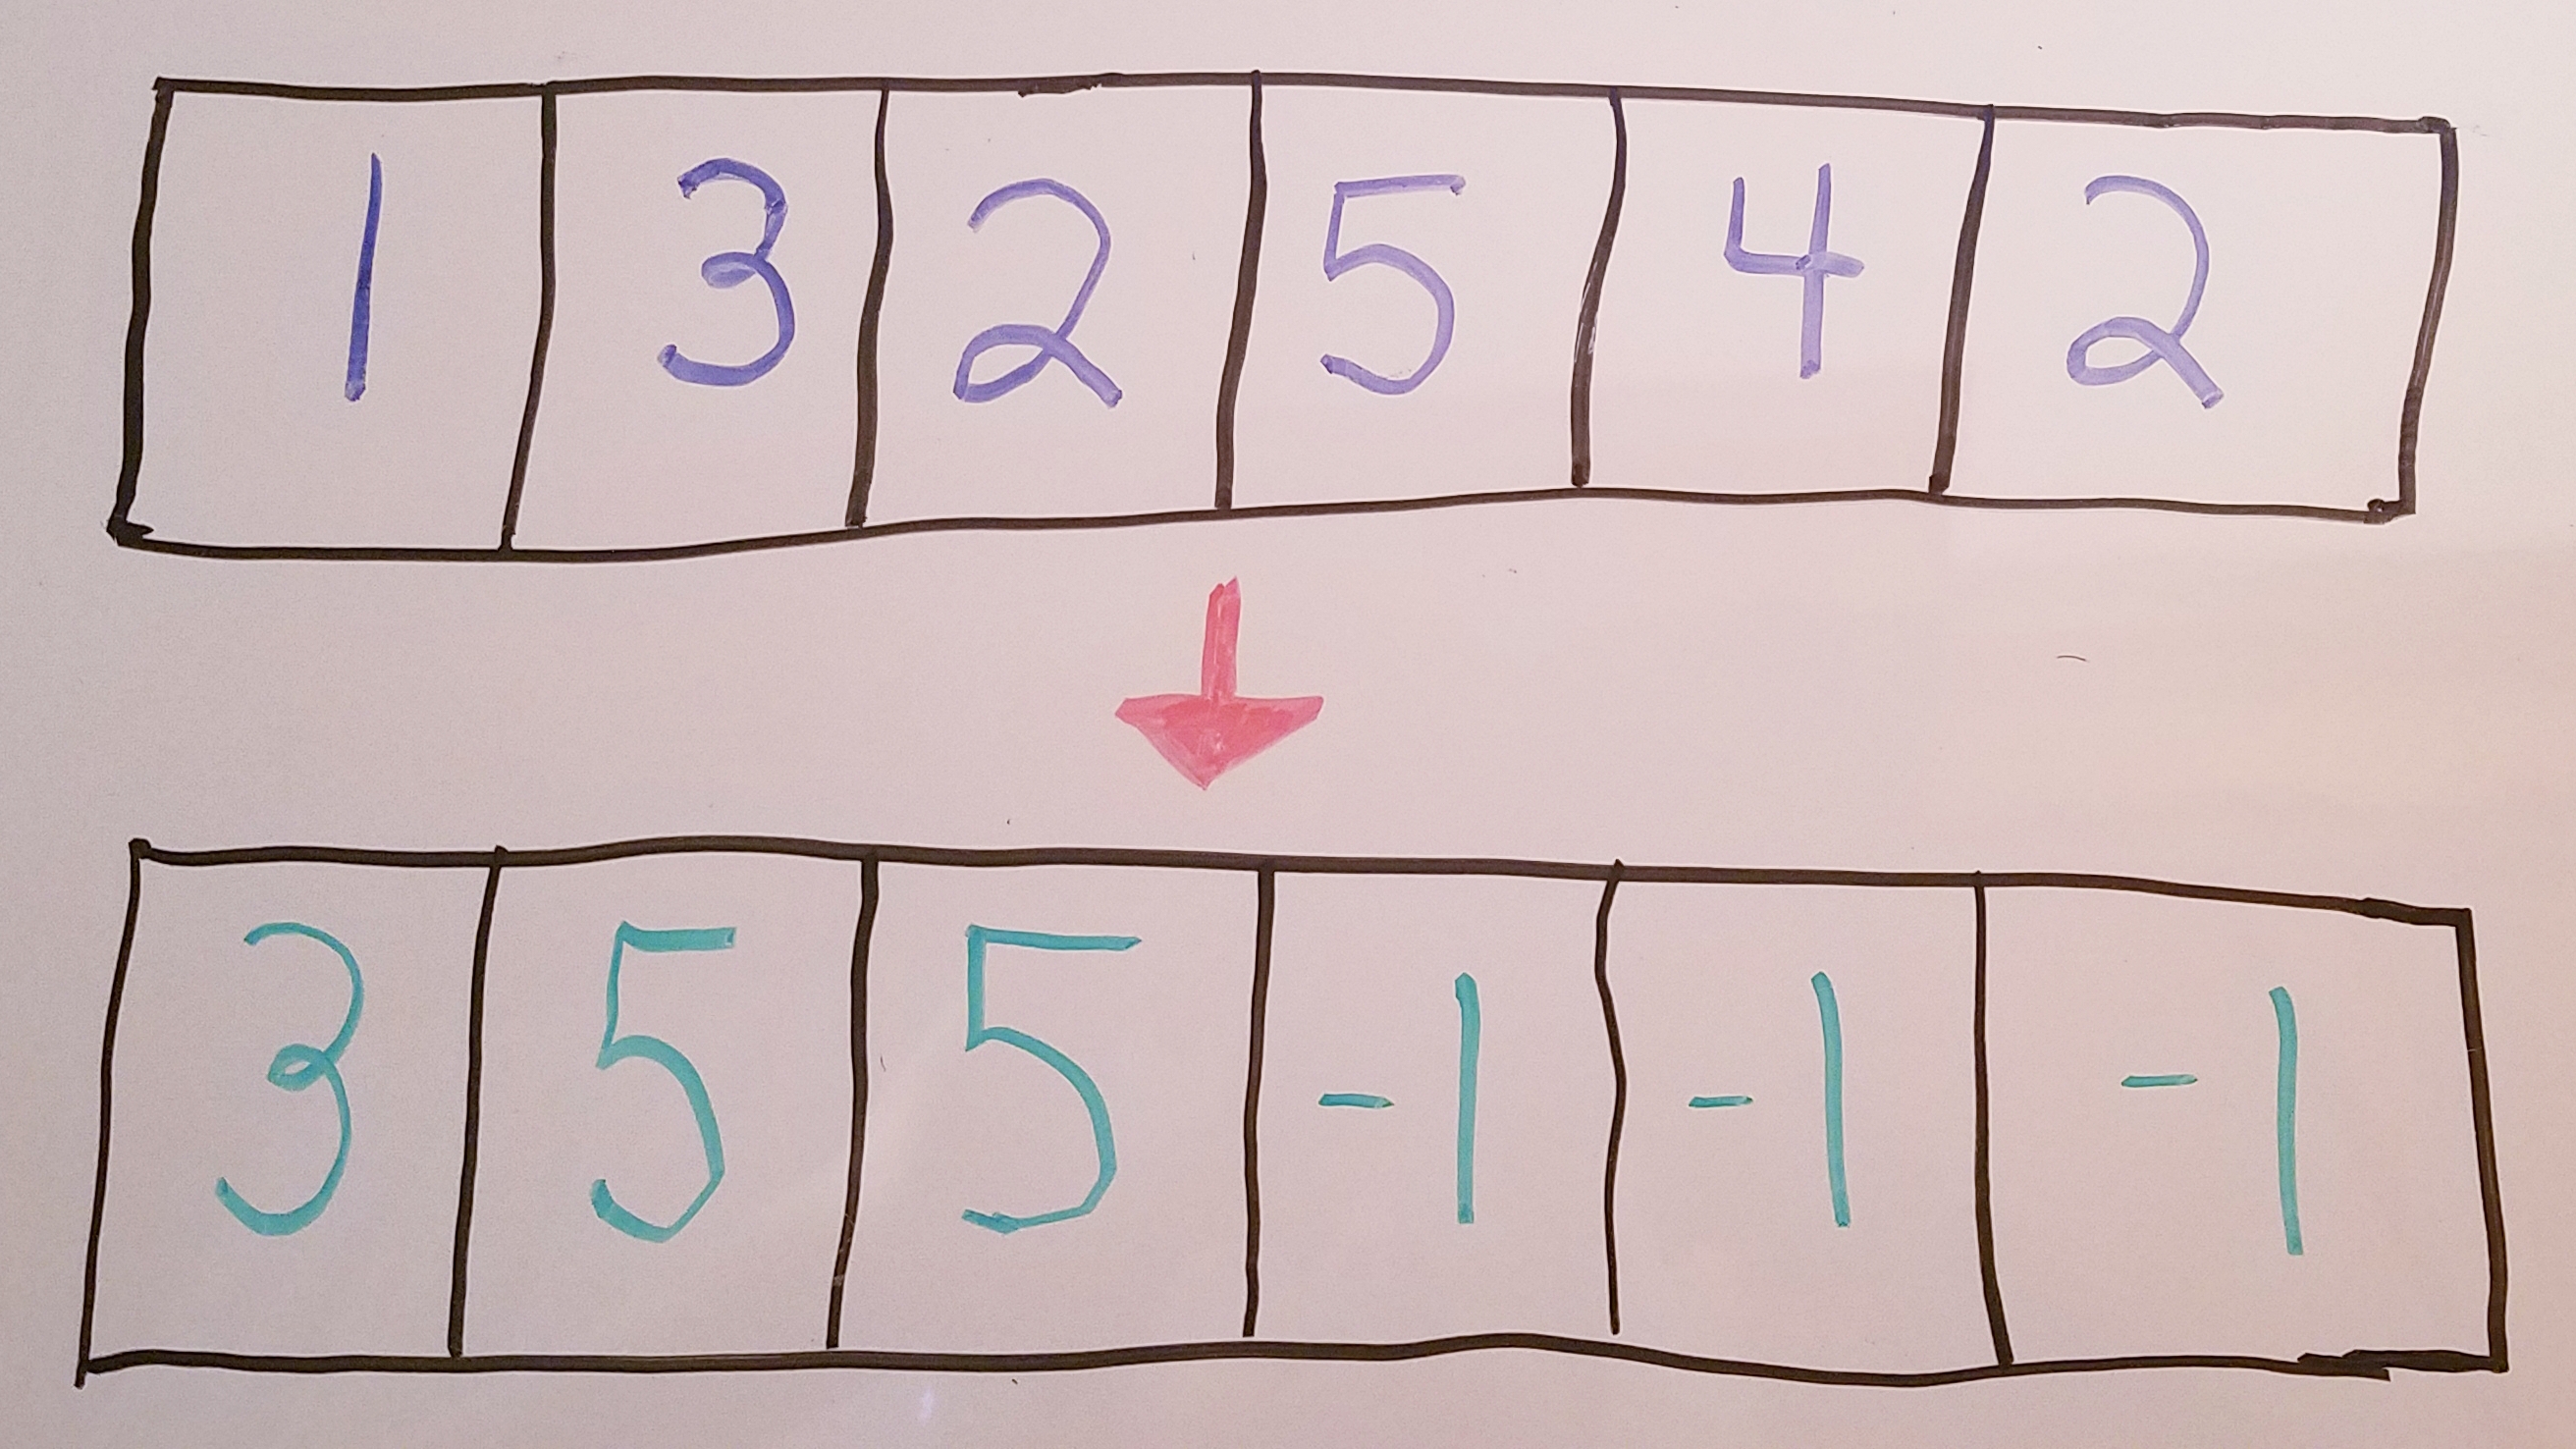 1 3 2 5 4 2
3 5 5 -1 -1 -1